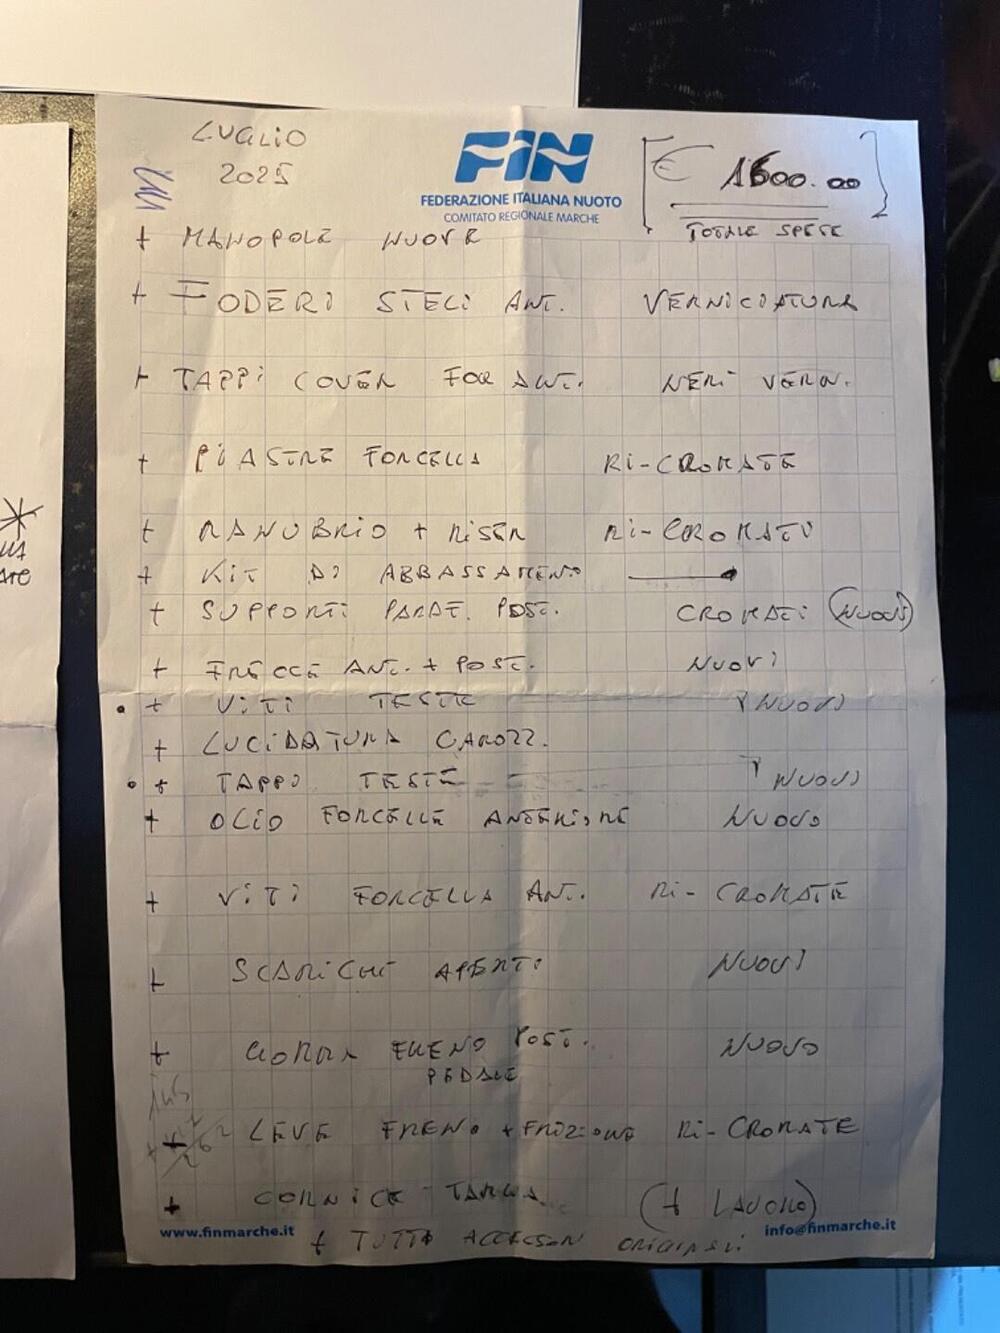 LUGLIO
2025
FIN
FEDERAZIONE ITALIANA NUOTO
COMITATO REGIONALE MARCHE
€ 1600.00
TOTALE SPESE
+ MANOPOLE NUOVE
+ FODERI STELI ANT. VERNICIATURA
+ TAPPI COVER FOR ANT. NERI VERN.
+ PIASTRE FORCELLA RI-CROMATE
+ MANUBRIO + RISER RI-CROMATO
+ KIT DI ABBASSAMENO
+ SUPPORTI PARAT. POST. CROMATI (NUOVI)
+ FRECCE ANT. + POST. NUOVI
• + VITI TESTE NUOVI
+ LUCIDATURA CAROZZ.
• + TAPPI TESTE NUOVI
+ OLIO FORCELLE ANTERIORE NUOVO
+ VITI FORCELLA ANT. RI-CROMATE
+ SCARICHI APERTI NUOVI
+ GOMMA FRENO POST. NUOVO
PEDALE
+ LEVE FRENO + FRIZIONE RI-CROMATE
+ CORNICE TARGA (+ LAVORO)
www.finmarche.it info@finmarche.it
+ TUTTI ACCESSORI ORIGINALI